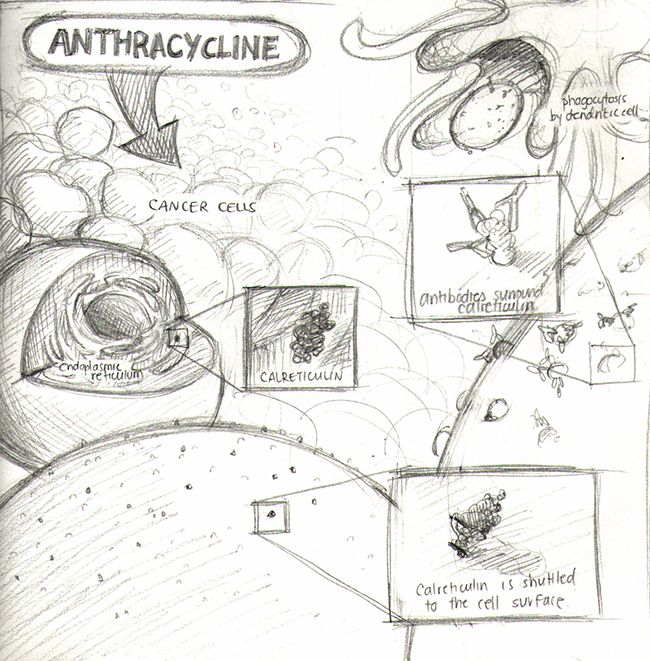 ANTHRACYCLINE
phagocytosis
by dendritic cell
CANCER CELLS
antibodies surround
calreticulin
endoplasmic
reticulum
CALRETICULIN
Calreticulin is shuttled
to the cell surface.